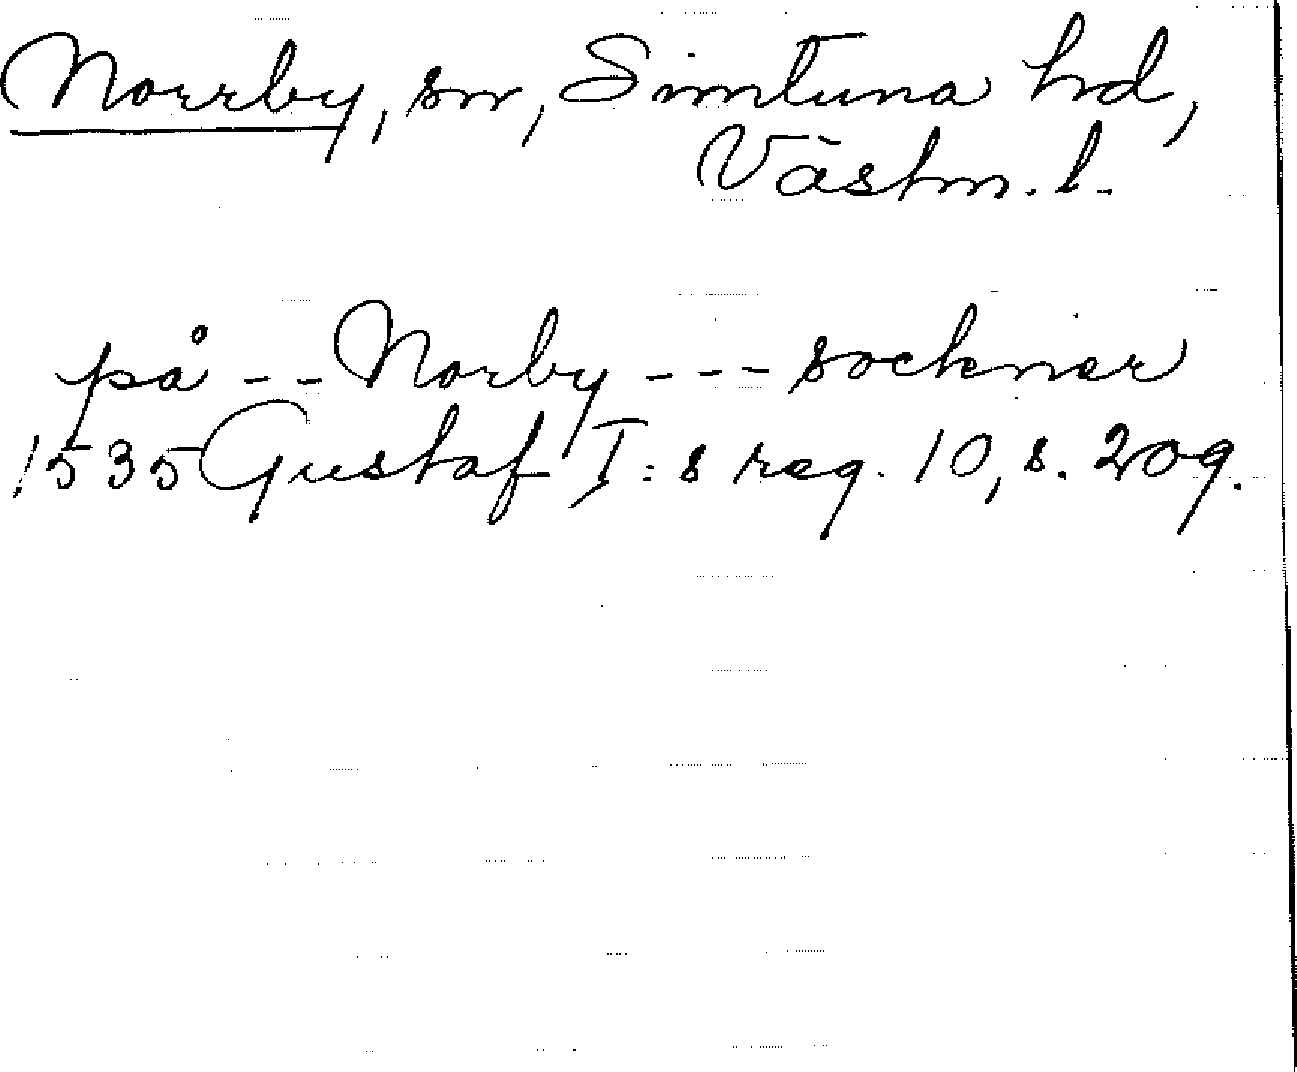 Norrby, sn, Simtuna hd,
Västm. l.
på -- Norby --- socknar
1535 Gustaf I:s reg. 10, s. 209.